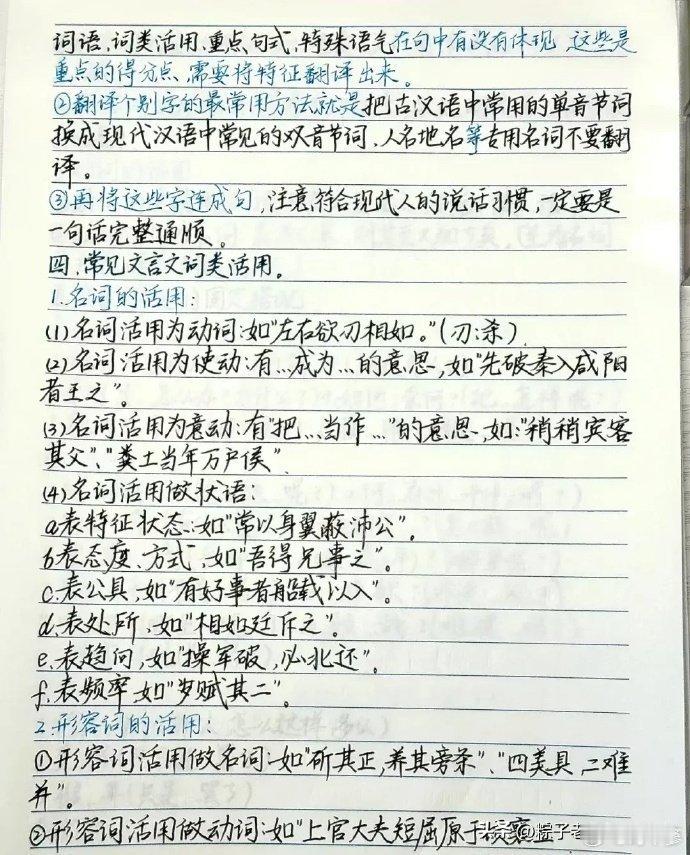 词语、词类活用、重点句式、特殊语气在句中有没有体现,这些是
重点的得分点,需要将特征翻译出来。
②翻译个别字的最常用方法就是把古汉语中常用的单音节词
换成现代汉语中常见的双音节词,人名地名等专用名词不要翻
译。
③再将这些字连成句,注意,符合现代人的说话习惯,一定要是
一句话完整通顺。
四、常见文言文词类活用。
1.名词的活用:
(1)名词活用为动词:如"左右欲刃相如。"(刃:杀)
(2)名词活用为使动:有…成为…的意思,如"先破秦入咸阳
者王之"。
(3)名词活用为意动:有"把…当作…"的意思,如:"稍稍宾客
其父"、"粪土当年万户侯"
(4)名词活用做状语:
a.表特征状态:如"常以身翼蔽沛公"。
b.表态度、方式,如"吾得兄事之"。
c.表公具,如"有好事者船载以入"。
d.表处所,如"相如廷斥之"。
e.表趋向,如"操军破,必北还"。
f.表频率,如"岁赋其二"。
2.形容词的活用:
①形容词活用做名词:如"斫其正,养其旁条"、"四美具,二难
并"。
②形容词活用做动词:如"上官大夫短屈原于顷襄王